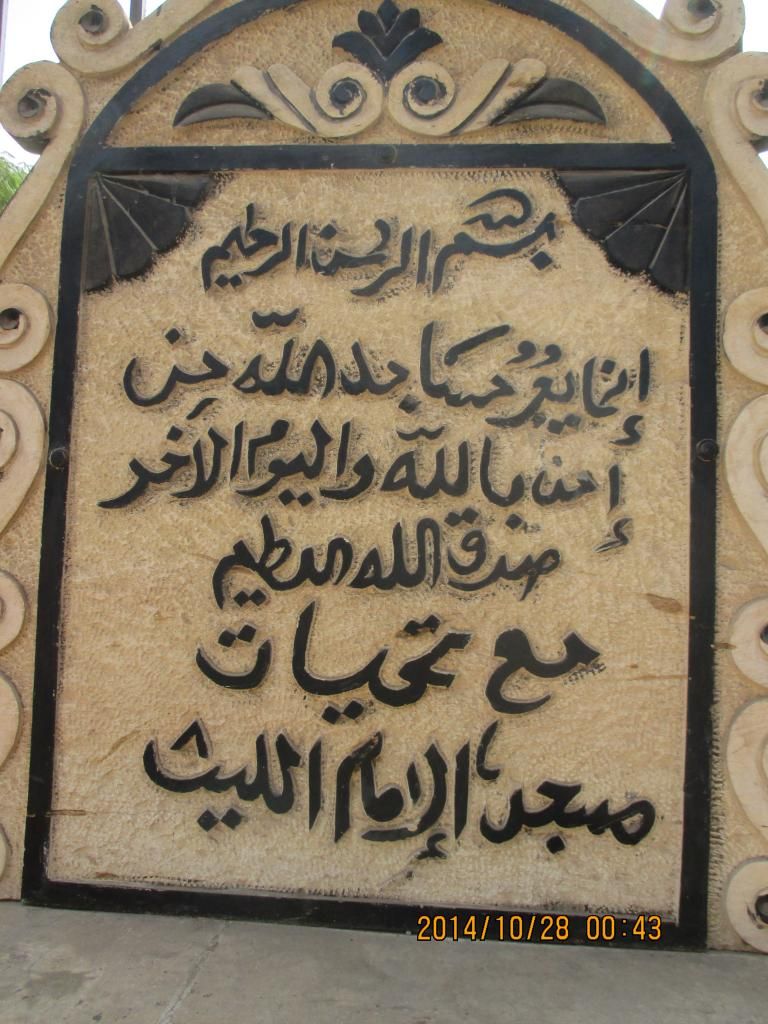 بسم الله الرحمن الرحيم
إنما يعمر مساجد الله من
إمن بالله واليوم الأخر
صدق الله العظيم
مع تحيات
مسجد الإمام الليث
2014/10/28 00:43